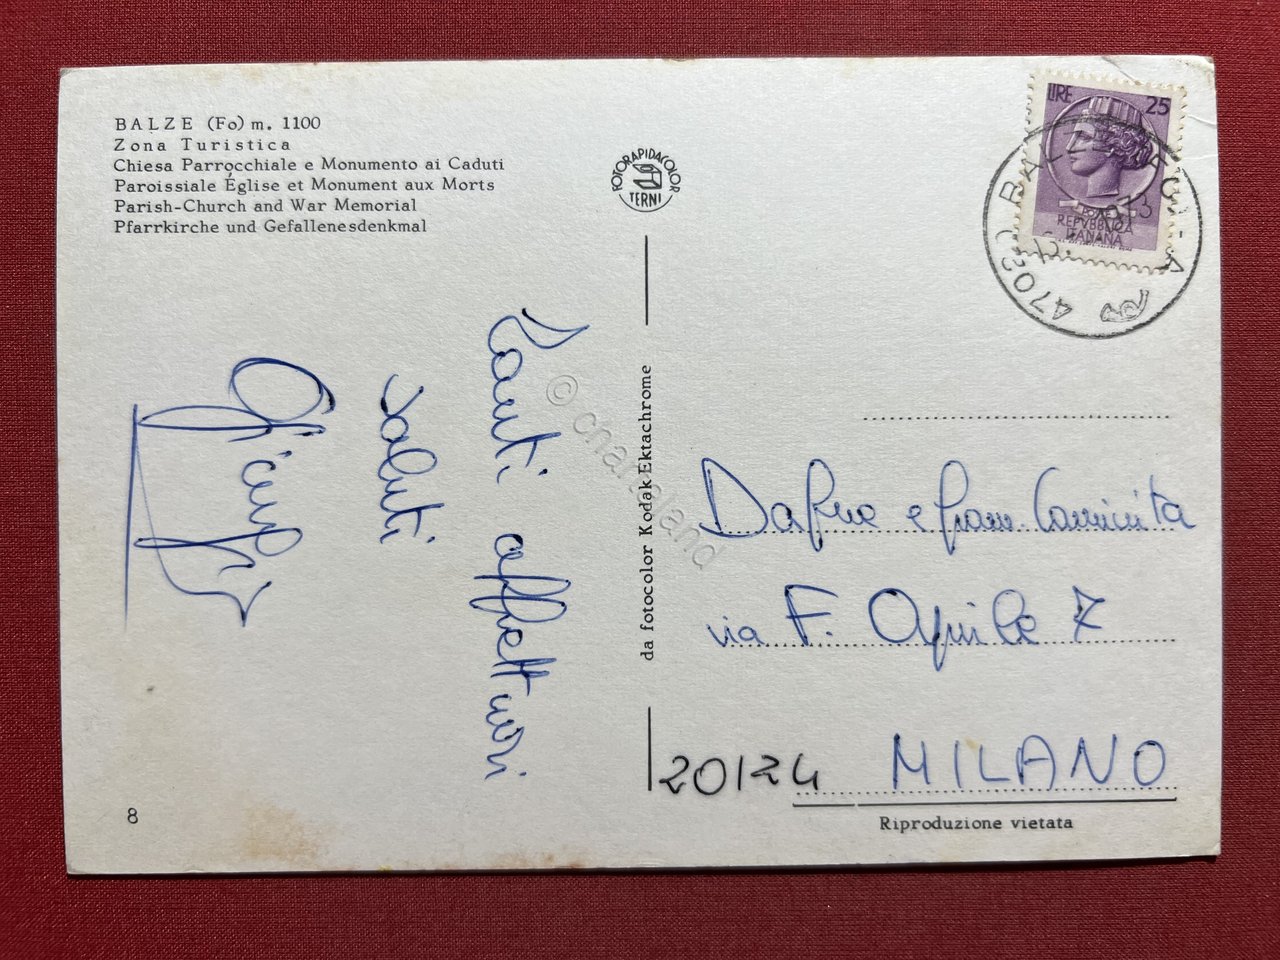 BALZE (Fo) m. 1100
Zona Turistica
Chiesa Parrocchiale e Monumento ai Caduti
Paroissiale Église et Monument aux Morts
Parish-Church and War Memorial
Pfarrkirche und Gefallenesdenkmal
FOTORAPIDACOLOR
TERNI
LIRE 25
REPVBBLICA
ITALIANA
Tanti affettuosi
saluti
da fotocolor Kodak Ektachrome
© charta land
Dafne e
via F. Aprile 7
20124 MILANO
8
Riproduzione vietata